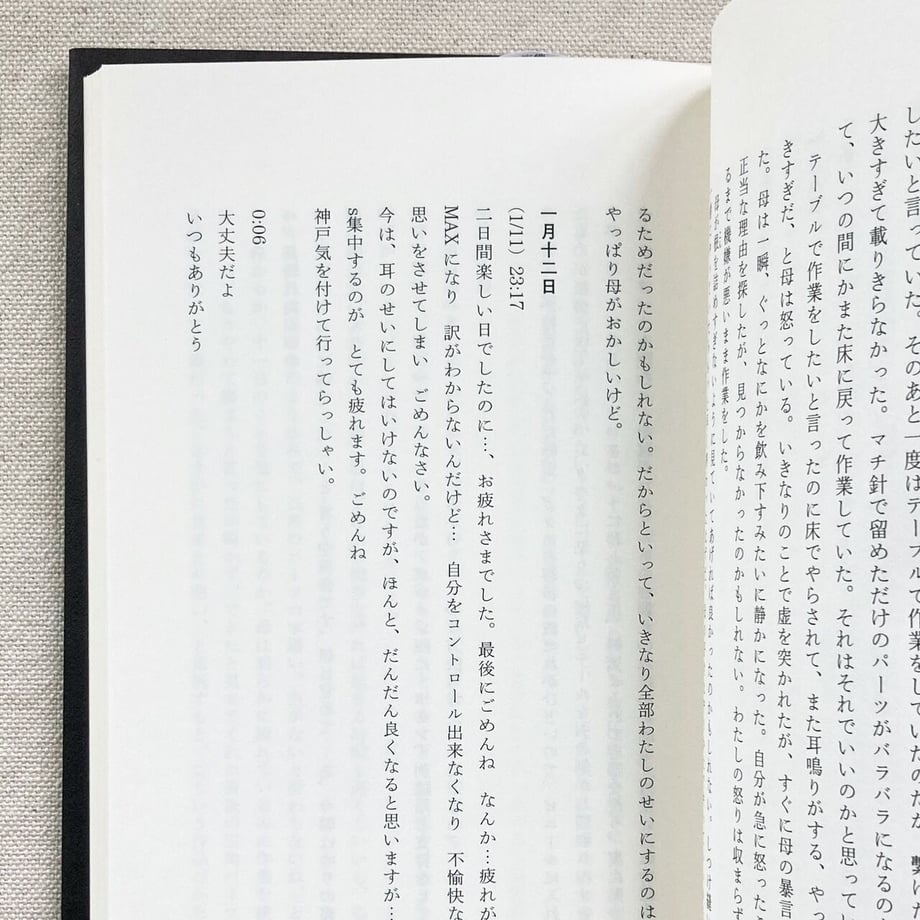 したいと言っていた。そのあと一度はテーブルで作業をしていたのだが、
大きすぎて載りきらなかった。マチ針で留めただけのパーツがバラバラになるの
て、いつの間にかまた床に戻って作業していた。それはそれでいいのかと思って
テーブルで作業をしたいと言ったのに床でやらされて、また耳鳴りがする、や
きすぎだ、と母は怒っている。いきなりのことで虚を突かれたが、すぐに母の暴言
た。母は一瞬、ぐっとなにかを飲み下すみたいに静かになった。自分が急に怒った
正当な理由を探したが、見つからなかったのかもしれない。わたしの怒りは収まらず
るまで機嫌が悪いまま作業をした。
るためだったのかもしれない。だからといって、いきなり全部わたしのせいにするのは
やっぱり母がおかしいけど。
一月十二日
(1/11) 23:17
二日間楽しい日でしたのに…、お疲れさまでした。最後にごめんね　なんか…疲れが
MAXになり　訳がわからないんだけど…　自分をコントロール出来なくなり　不愉快な
思いをさせてしまい　ごめんなさい。
今は、耳のせいにしてはいけないのですが、ほんと、だんだん良くなると思いますが…
s集中するのが　とても疲れます。ごめんね
神戸気を付けて行ってらっしゃい。
0:06
大丈夫だよ
いつもありがとう